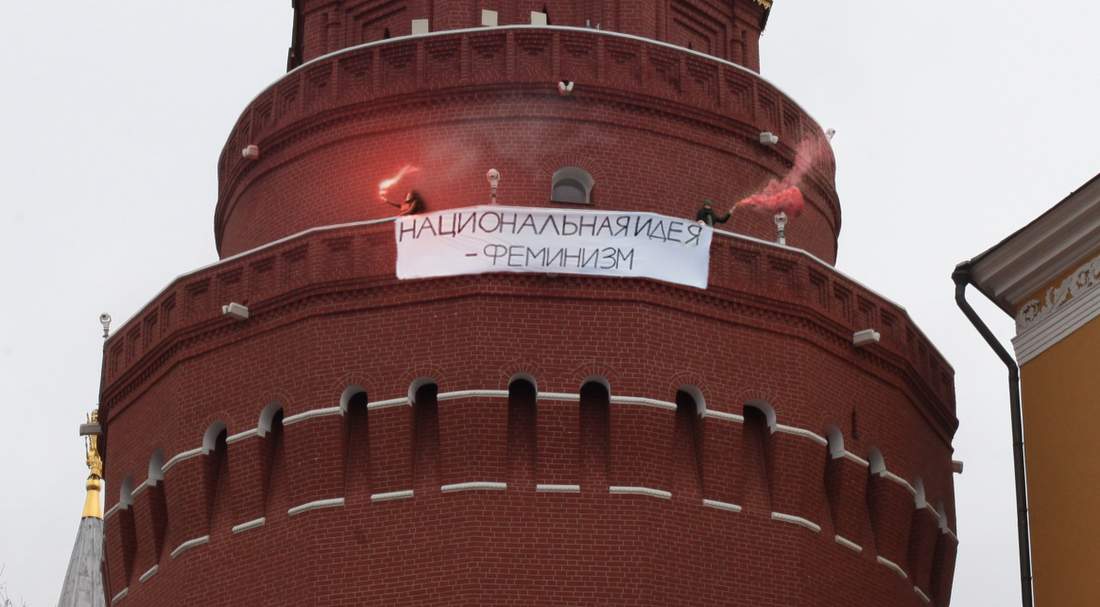 НАЦИОНАЛЬНАЯ ИДЕЯ
- ФЕМИНИЗМ